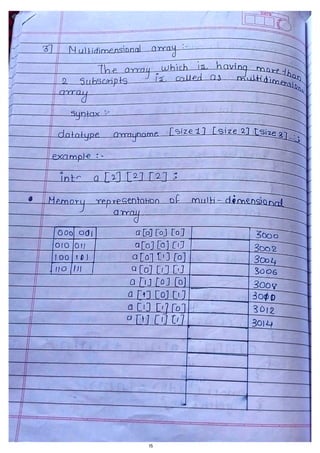 3] Multidimensional array :-
The array which is having more than
2 Subscripts is called as multidimensional
array
Syntax :-
datatype arrayname [size1] [size2] [size3]...;
example :-
int a [2] [2] [2] ;
• Memory representation of multi-dimensional
array
000 001 a[0] [0] [0] 3000
010 011 a[0] [0] [1] 3002
100 101 a[0] [1] [0] 3004
110 111 a[0] [1] [1] 3006
a[1] [0] [0] 3008
a[1] [0] [1] 3010
a[1] [1] [0] 3012
a[1] [1] [1] 3014
15